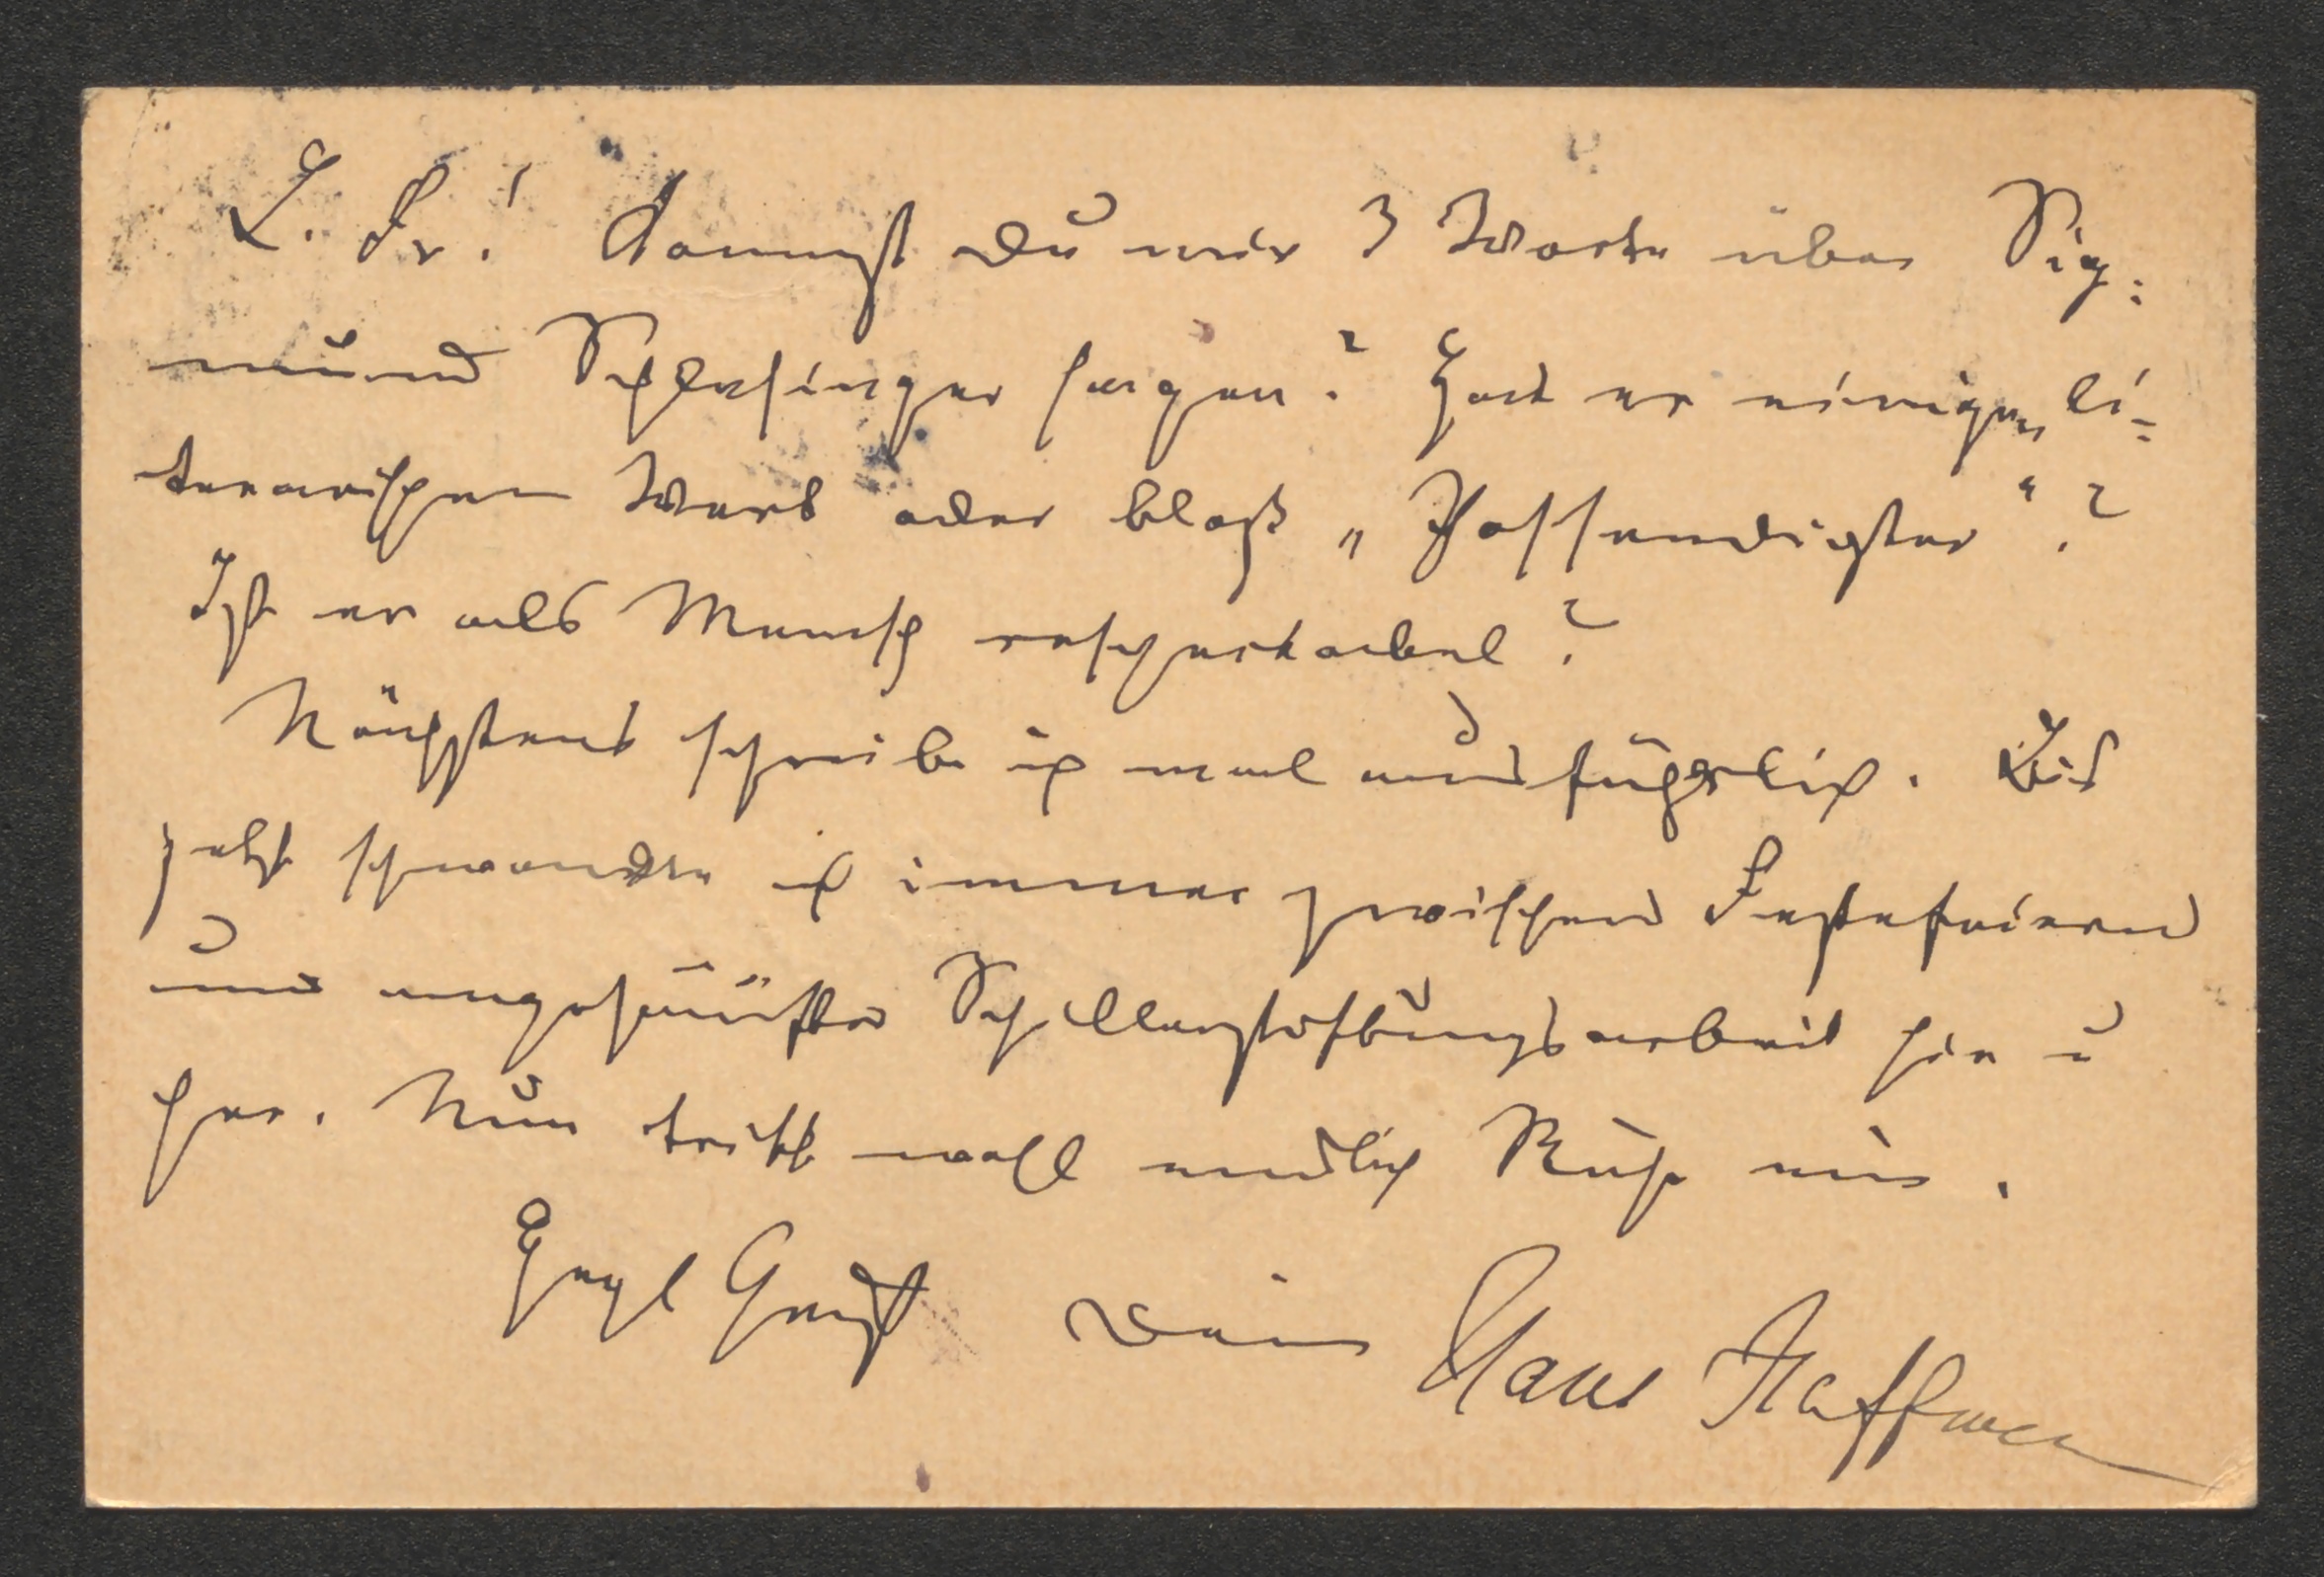 L. Fr.! Kannst Du mir 3 Worte über Sig=
mund Schlesinger sagen? Hat er einigen li=
terarischen Wert oder bloß „Possendichter“?
Ist er als Mensch respectabel?
Nächstens schreibe ich mal ausführlich. Bis
jetzt schwankte ich immer zwischen Festefeiern
und Schillerstiftungsarbeit hin u
her. Nun tritt wohl endlich Ruhe ein.
Herzl Gruß Dein Hans Hoffmann